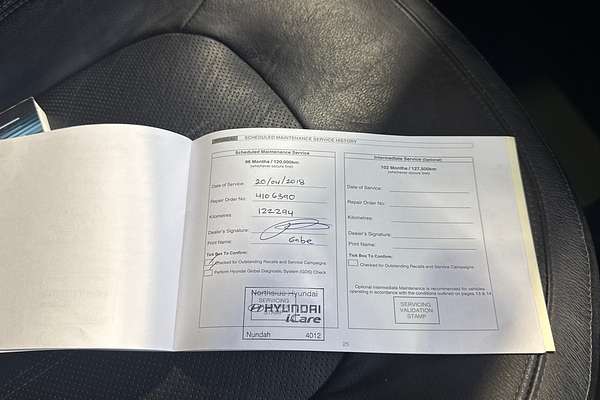 SCHEDULED MAINTENANCE SERVICE HISTORY
Scheduled Maintenance Service
96 Months / 120,000km
(whichever occurs first)
Date of Service: 20/04/2018
Repair Order No: 4106390
Kilometres: 122294
Dealer's Signature:
Print Name: Gabe
Tick Box To Confirm:
Checked for Outstanding Recalls and Service Campaigns
Perform Hyundai Global Diagnostic System (GDS) Check
Northside Hyundai
SERVICING
HYUNDAI
iCare
Nundah 4012
Intermediate Service (Optional)
102 Months / 127,500km
(whichever occurs first)
Date of Service:
Repair Order No:
Kilometres:
Dealer's Signature:
Print Name:
Tick Box To Confirm:
Checked for Outstanding Recalls and Service Campaigns
Optional Intermediate Maintenance is recommended for vehicles
operating in accordance with the conditions outlined on pages 13 & 14
SERVICING
VALIDATION
STAMP
25